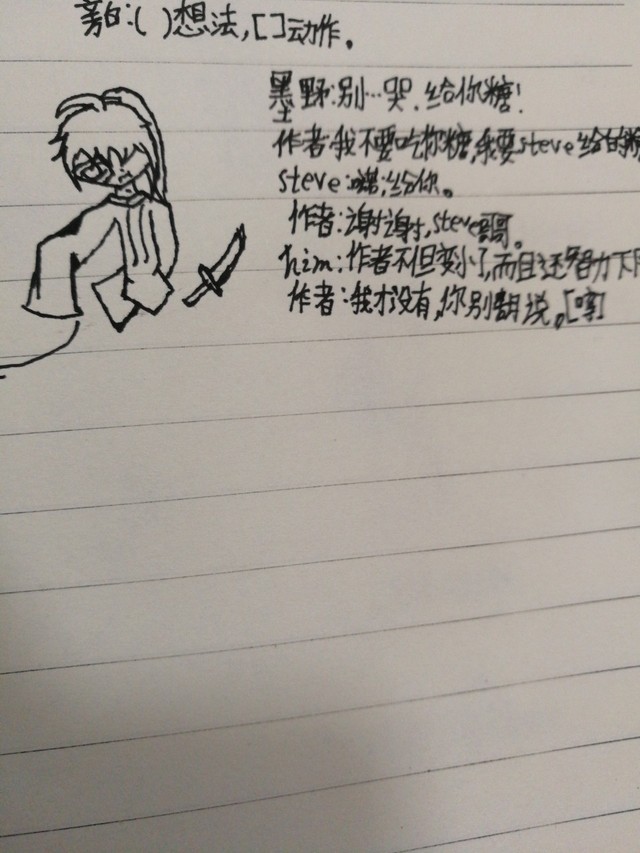 旁白:( )想法,[ ]动作。
墨野:别…哭,给你糖!
作者:我不要吃你糖,我要steve给的糖
steve:喏,给你。
作者:谢谢,steve哥哥。
him:作者不但变小了,而且还智力下
作者:我才没有,你别胡说。[哼]